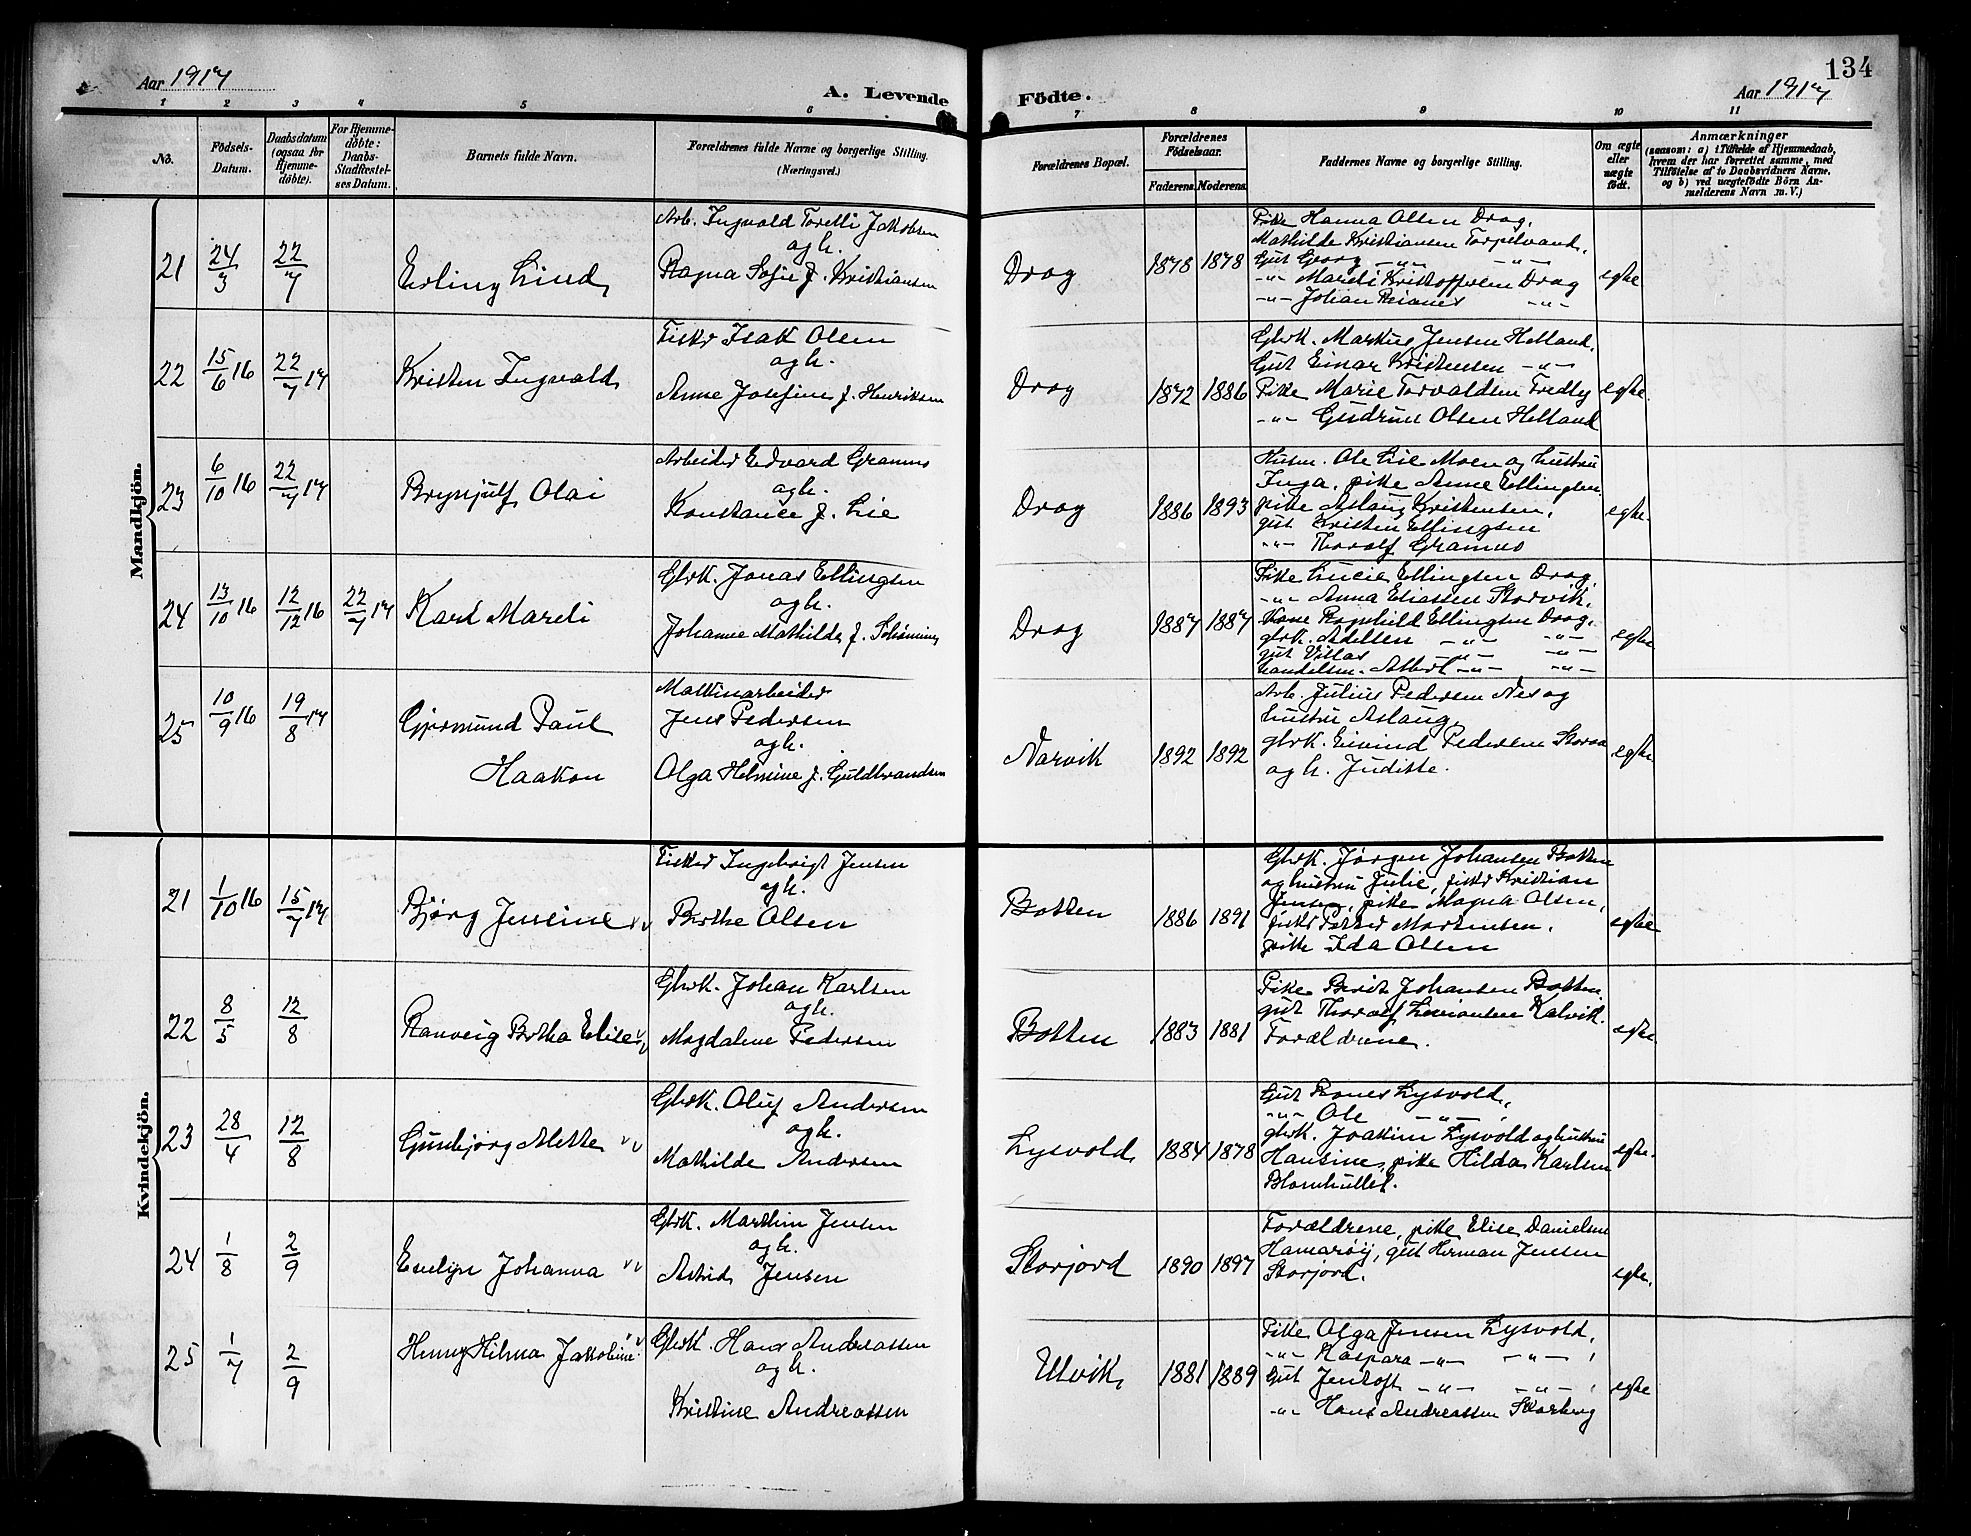 134
Aar 1917
A. Levende Födte.
Aar 1917
1 2 3 4 5 6 7 8 9 10 11
No.
Födsels-Datum.
Daabsdatum (ogsaa for Hjemme-döbte).
For Hjemme-döbte: Daabs-Stadfæstel-ses Datum.
Barnets fulde Navn.
Forældrenes fulde Navne og borgerlige Stilling.
(Næringsvei.)
Forældrenes Bopæl.
Forældrenes Födselsaar.
Faderens. Moderens.
Faddernes Navne og borgerlige Stilling.
Om ægte eller uægte födt.
Anmærkninger
(saasom: a) i Tilfælde af Hjemmedaab,
hvem der har forrettet samme, med
Tilföielse af to Daabsvidners Navne.
og b) ved uægtefödte Börn An-
melderens Navn m. V.)
Mandkjön.
21 24/3 22/7 Erling Lind
Arb. Ingvald Torelli Jakobsen
og h.
Ragna Sofie f. Kristiansen
Drag 1878 1878
Pike Hanna Olsen Drag,
Mathilde Kristiansen Torpelvand,
Gut Georg -"- -"-
-"- Mareli Kristoffersen Drag
-"- Johan Reianes -"-
egte
22 15/6 16 22/7 17 Kristen Ingvald
Fisker Isak Olsen
og h.
Anne Josefine f. Henriksen
Drag 1872 1886
Gbrk. Markus Jensen Helland,
Gut Einar Kristensen -"-
Pike Marie Torvaldsen Tredby
-"- Gudrun Olsen Helland
egte.
23 6/10 16 22/7 17 Brynjulf Olai
Arbeider Edvard Gramus
og h.
Konstance f. Lie
Drag 1886 1893
Husm. Ole Lie Moen og hustru
Inga, pike Anne Ellingsen
pike Aslaug Kristensen,
gut Kristen Ellingsen
-"- Thoralf Gramus
egte.
24 13/10 16 12/12 16 22/7 17 Karl Mareli
Gbrk. Jonas Ellingsen
og h.
Johanne Mathilde f. Schøning
Drag 1887 1887
Pike Lucie Ellingsen Drag,
-"- Anna Eliassen Storvik,
Kone Ragnhild Ellingsen Drag,
gbrk. Adelsen -"- -"-
gut Villas -"- -"-
handelsm. Albert -"- -"-
egte
25 10/9 16 19/8 17 Gjermund Paul
Haakon
Maskinarbeider
Jens Pedersen
og h.
Olga Helmine f. Guldbrandsen
Narvik 1892 1892
Arb. Julius Pedersen Nes og
hustru Aslaug,
gbrk. Eivind Pedersen Storaa
og h. Juditte.
egte
Kvindekjön.
21 1/10 16 15/7 17 Bjørg Jensine
Fisker Ingebrigt Jensen
og h.
Berthe Olsen
Botten 1886 1891
Gbrk. Jørgen Johansen Botten
og hustru Julie, fisker Kristian
Jensen, pike Magna Olsen,
fisker Petter Martinsen.
pike Ida Olsen
egte
22 8/5 12/8 Ranveig Bertha Elise
Gbrk. Johan Karlsen
og h.
Magdalene Pedersen
Botten 1883 1881
Pike Berit Johansen Botten,
gut Thoralf Kalvik.
Forældrene.
egte.
23 28/4 12/8 Gunbjørg Alette
Gbrk. Oluf Andersen
og h.
Mathilde Andersen
Lysvold 1884 1878
Gut Rones Lysvold,
-"- Ole -"- ,
gbrk. Joakim Lysvold og hustru
Hansine, pike Hilda Karlsen
egte.
24 1/8 2/9 Evelyn Johanna
Gbrk. Marthin Jensen
og h.
Astrid Jensen
Storjord 1890 1897
Forældrene, pike Elise Danielsen
Hamarøy, gut Herman Jensen
Storjord.
egte.
25 1/7 2/9 Henny Hilma Jakobine
Gbrk. Hans Andreassen
og h.
Kristine Andreassen
Ulvik 1881 1889
Pike Olga Jensen Lysvold,
-"- Kaspara -"- -"- ,
Gut Jentoft -"- -"- ,
-"- Hans Andreassen Skarberg
egte